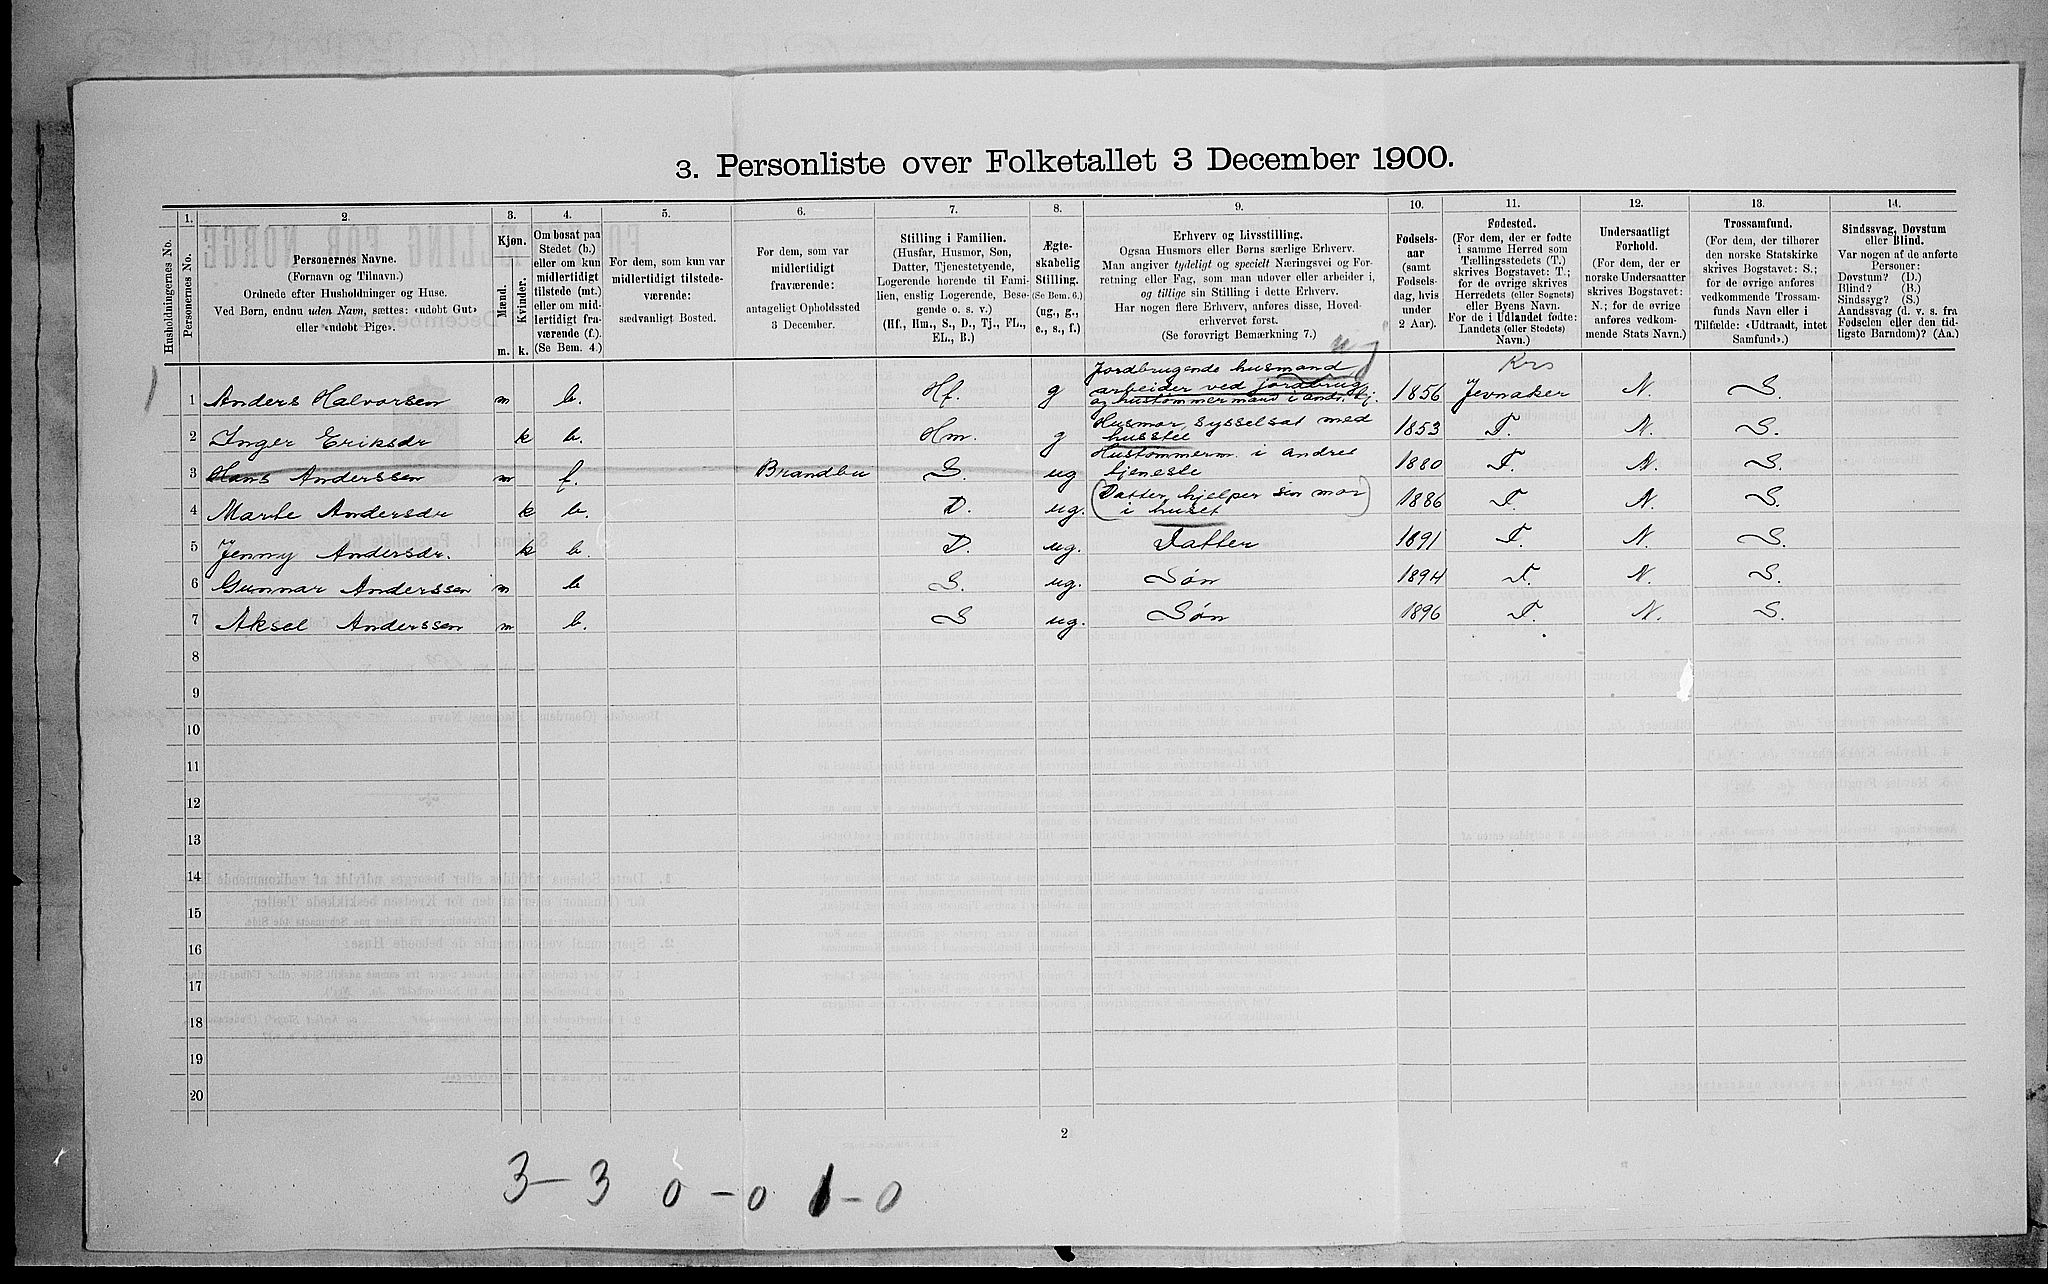 3. Personliste over Folketallet 3 December 1900.
Husholdningernes No.
1.
Personernes No.
2.
Personernes Navne.
(Fornavn og Tilnavn.)
Ordnede efter Husholdninger og Huse.
Ved Børn, endnu uden Navn, sættes: «udøbt Gut»
eller «udøbt Pige».
3.
Kjøn.
Mænd.
Kvinder.
m. k.
4.
Om bosat paa
Stedet (b.)
eller om kun
midlertidigt
tilstede (mt.)
eller om mid-
lertidigt fra-
værende (f.).
(Se Bem. 4.)
5.
For dem, som kun var
midlertidigt tilstede-
værende:
sædvanligt Bosted.
6.
For dem, som var
midlertidigt
fraværende:
antageligt Opholdssted
3 December.
7.
Stilling i Familien.
(Husfar, Husmor, Søn,
Datter, Tjenestetyende,
Logerende hørende til Fami-
lien, enslig Logerende, Besø-
gende o. s. v.)
(Hf., Hm., S., D., Tj., FL.,
EL., B.)
8.
Ægte-
skabelig
Stilling.
(Se Bem. 6.)
(ug., g.,
e., s., f.)
9.
Erhverv og Livsstilling.
Ogsaa Husmors eller Børns særlige Erhverv.
Man angiver tydeligt og specielt Næringsvei og For-
retning eller Fag, som man udøver eller arbeider i,
og tillige sin Stilling i dette Erhverv.
Har nogen flere Erhverv, anføres disse, Hoved-
erhvervet først.
(Se forøvrigt Bemærkning 7.)
10.
Fødsels-
aar
(samt
Fødsels-
dag, hvis
under
2 Aar).
11.
Fødested.
(For dem, der er fødte
i samme Herred som
Tællingsstedets (T.)
skrives Bogstavet: T.;
for de øvrige skrives
Herredets (eller Sognets)
eller Byens Navn.
For de i Udlandet fødte:
Landets (eller Stedets)
Navn.)
12.
Undersaatligt
Forhold.
(For dem, der er
norske Undersaatter
skrives Bogstavet:
N.; for de øvrige
anføres vedkom-
mende Stats Navn.)
13.
Trossamfund.
(For dem, der tilhører
den norske Statskirke
skrives Bogstavet: S.;
for de øvrige anføres
vedkommende Trossam-
funds Navn eller i
Tilfælde: «Udtraadt, intet
Samfund».)
14.
Sindssvag, Døvstum
eller Blind.
Var nogen af de anførte
Personer:
Døvstum? (D.)
Blind? (B.)
Sindssyg? (S.)
Aandssvag (d. v. s. fra
Fødselen eller den tid-
ligste Barndom)? (Aa.)
1 1 Anders Halvorsen m b. Hf. g Jordbrugende husmand
arbeider ved jordbrug
og hustømmermand i andr. tj. 1856 Krs Jevnaker N. S.
2 Inger Eriksdr k b. Hm. g Husmor, sysselsat med
husstel 1853 T. N. S.
3 Hans Anderssen m f. Brandbu S. ug Hustømmerm. i andres
tjeneste 1880 T. N. S.
4 Marte Andersdr k b. D. ug. (Datter, hjelper sin mor
i huset) 1886 T. N. S.
5 Jenny Andersdr. k b. D. ug. Datter 1891 T. N. S.
6 Gunnar Anderssen m b S. ug. Søn 1894 T. N. S.
7 Aksel Anderssen m b. S ug. Søn 1896 T. N. S.
8
9
10
11
12
13
14
15
16
17
18
19
20
2
3-3 0-0 1-0